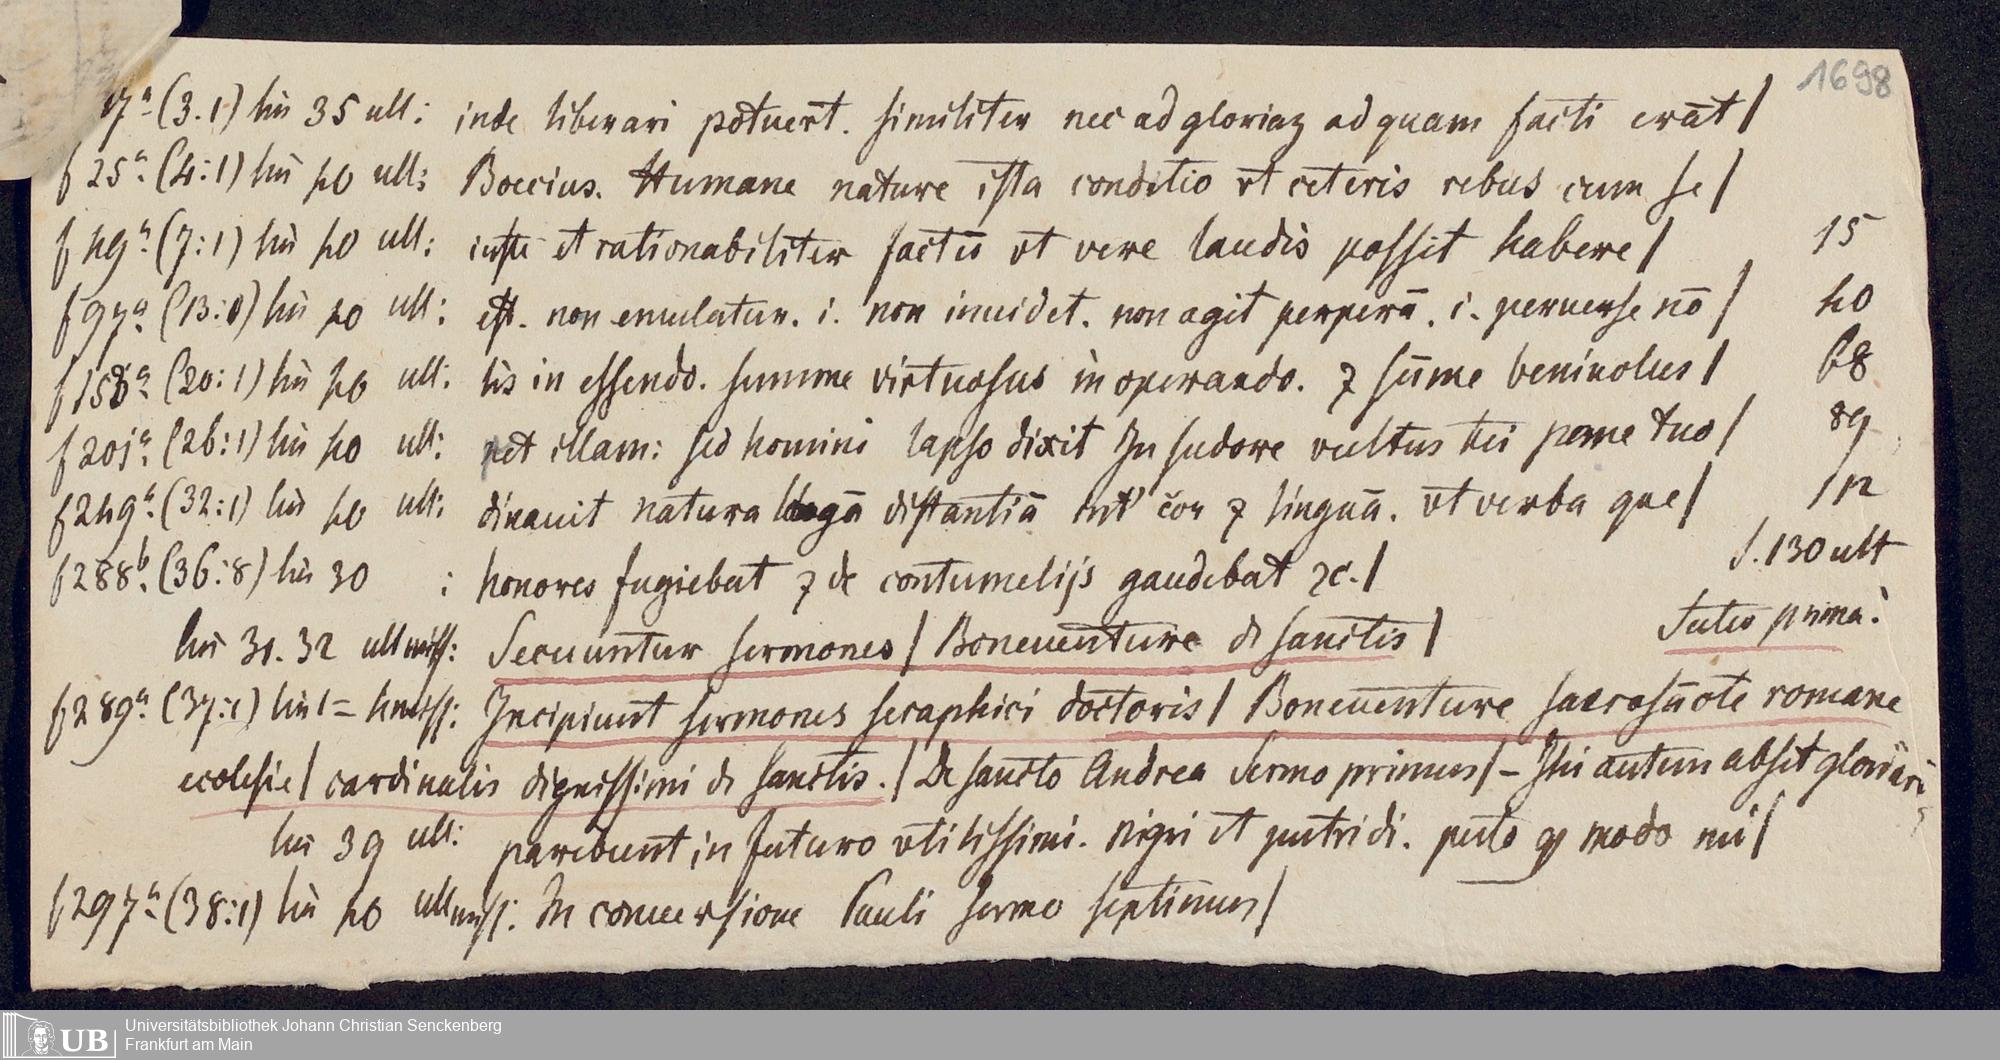 1698
17ª (3.1) lin 35 ult: inde liberari potuert̄. similiter nec ad gloriaȝ ad quam facti erāt |
f 25ª. (4:1) lin 40 ult: Boecius. Humane nature ista conditio vt ceteris rebus cum se |
f 49ª. (7:1) lin 40 ult: et rationabiliter factū vt vere laudis possit habere | 15
f 97ª. (13:1) lin 40 ult: est. non emulatur. i. non inuidet. non agit perperā. i. peruerse nō | 40
f 153ª. (20:1) lin 40 ult: lis in essendo. summe virtuosus in operando. ⁊ sūme beniuolus | 68
f 201ª. (26:1) lin 40 ult: pet illam: sed homini lapso dixit In sudore vultus tui pane tuo | 89
f 249ª. (32:1) lin 40 ult: dinauit natura lōgā distantiā int' cor ⁊ linguā. vt verba que | 112
f 288ᵇ. (36:8) lin 30 : honores fugiebat ⁊ de contumelijs gaudebat ⁊c. | S. 130 ult
lin 31. 32 ult miss: Secuuntur sermones | Boneuenture de sanctis | prima:
f 289ª. (37:1) lin 1 = miss: Incipiunt sermones seraphici doctoris | Boneuenture sacrosācte romane
ecclesie | cardinalis dignissimi de sanctis. | De sancto Andrea Sermo primus | – Ihi autem absit gloriari
lin 39 ult: parebunt in futuro vtilissimi. nigri et putridi. puto ꝙ modo mi |
f 297ª. (38:1) lin 40 ult miss: In conuersione Pauli sermo septimus |
UB Universitätsbibliothek Johann Christian Senckenberg
Frankfurt am Main